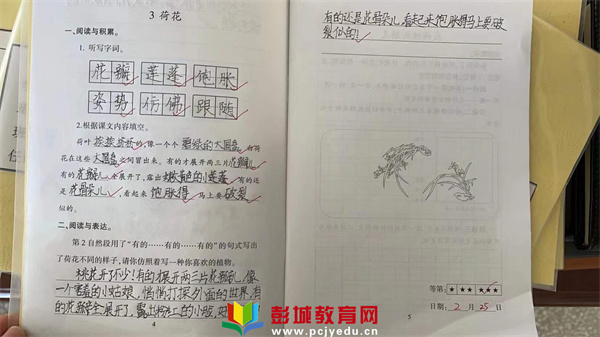 3 荷花
一、阅读与积累。
1. 听写字词。
花瓣 莲蓬 饱胀
姿势 仿佛 跟随
2.根据课文内容填空。
荷叶挨挨挤挤的,像一个个碧绿的大圆盘。白荷
花在这些大圆盘之间冒出来。有的才展开两三片花瓣儿。
有的花瓣儿全展开了,露出嫩黄色的小莲蓬。有的还
是花骨朵儿,看起来饱胀得马上要破裂
似的。
二、阅读与表达。
第2自然段用了“有的……有的……有的”的句式写出
了荷花不同的样子,请你仿照着写一种你喜欢的植物。
桃花开了不少!有的展开两三片花瓣儿,像
一个害羞的小姑娘,悄悄打探外面的世界,有
的花瓣全展开了,露出粉红的小孩,
4
有的还是花骨朵儿,看起来饱胀得马上要破
裂似的!
等第:★ ★★ ★★★
日期:2月25日
5
彭城教育网
www.pcjyedu.com